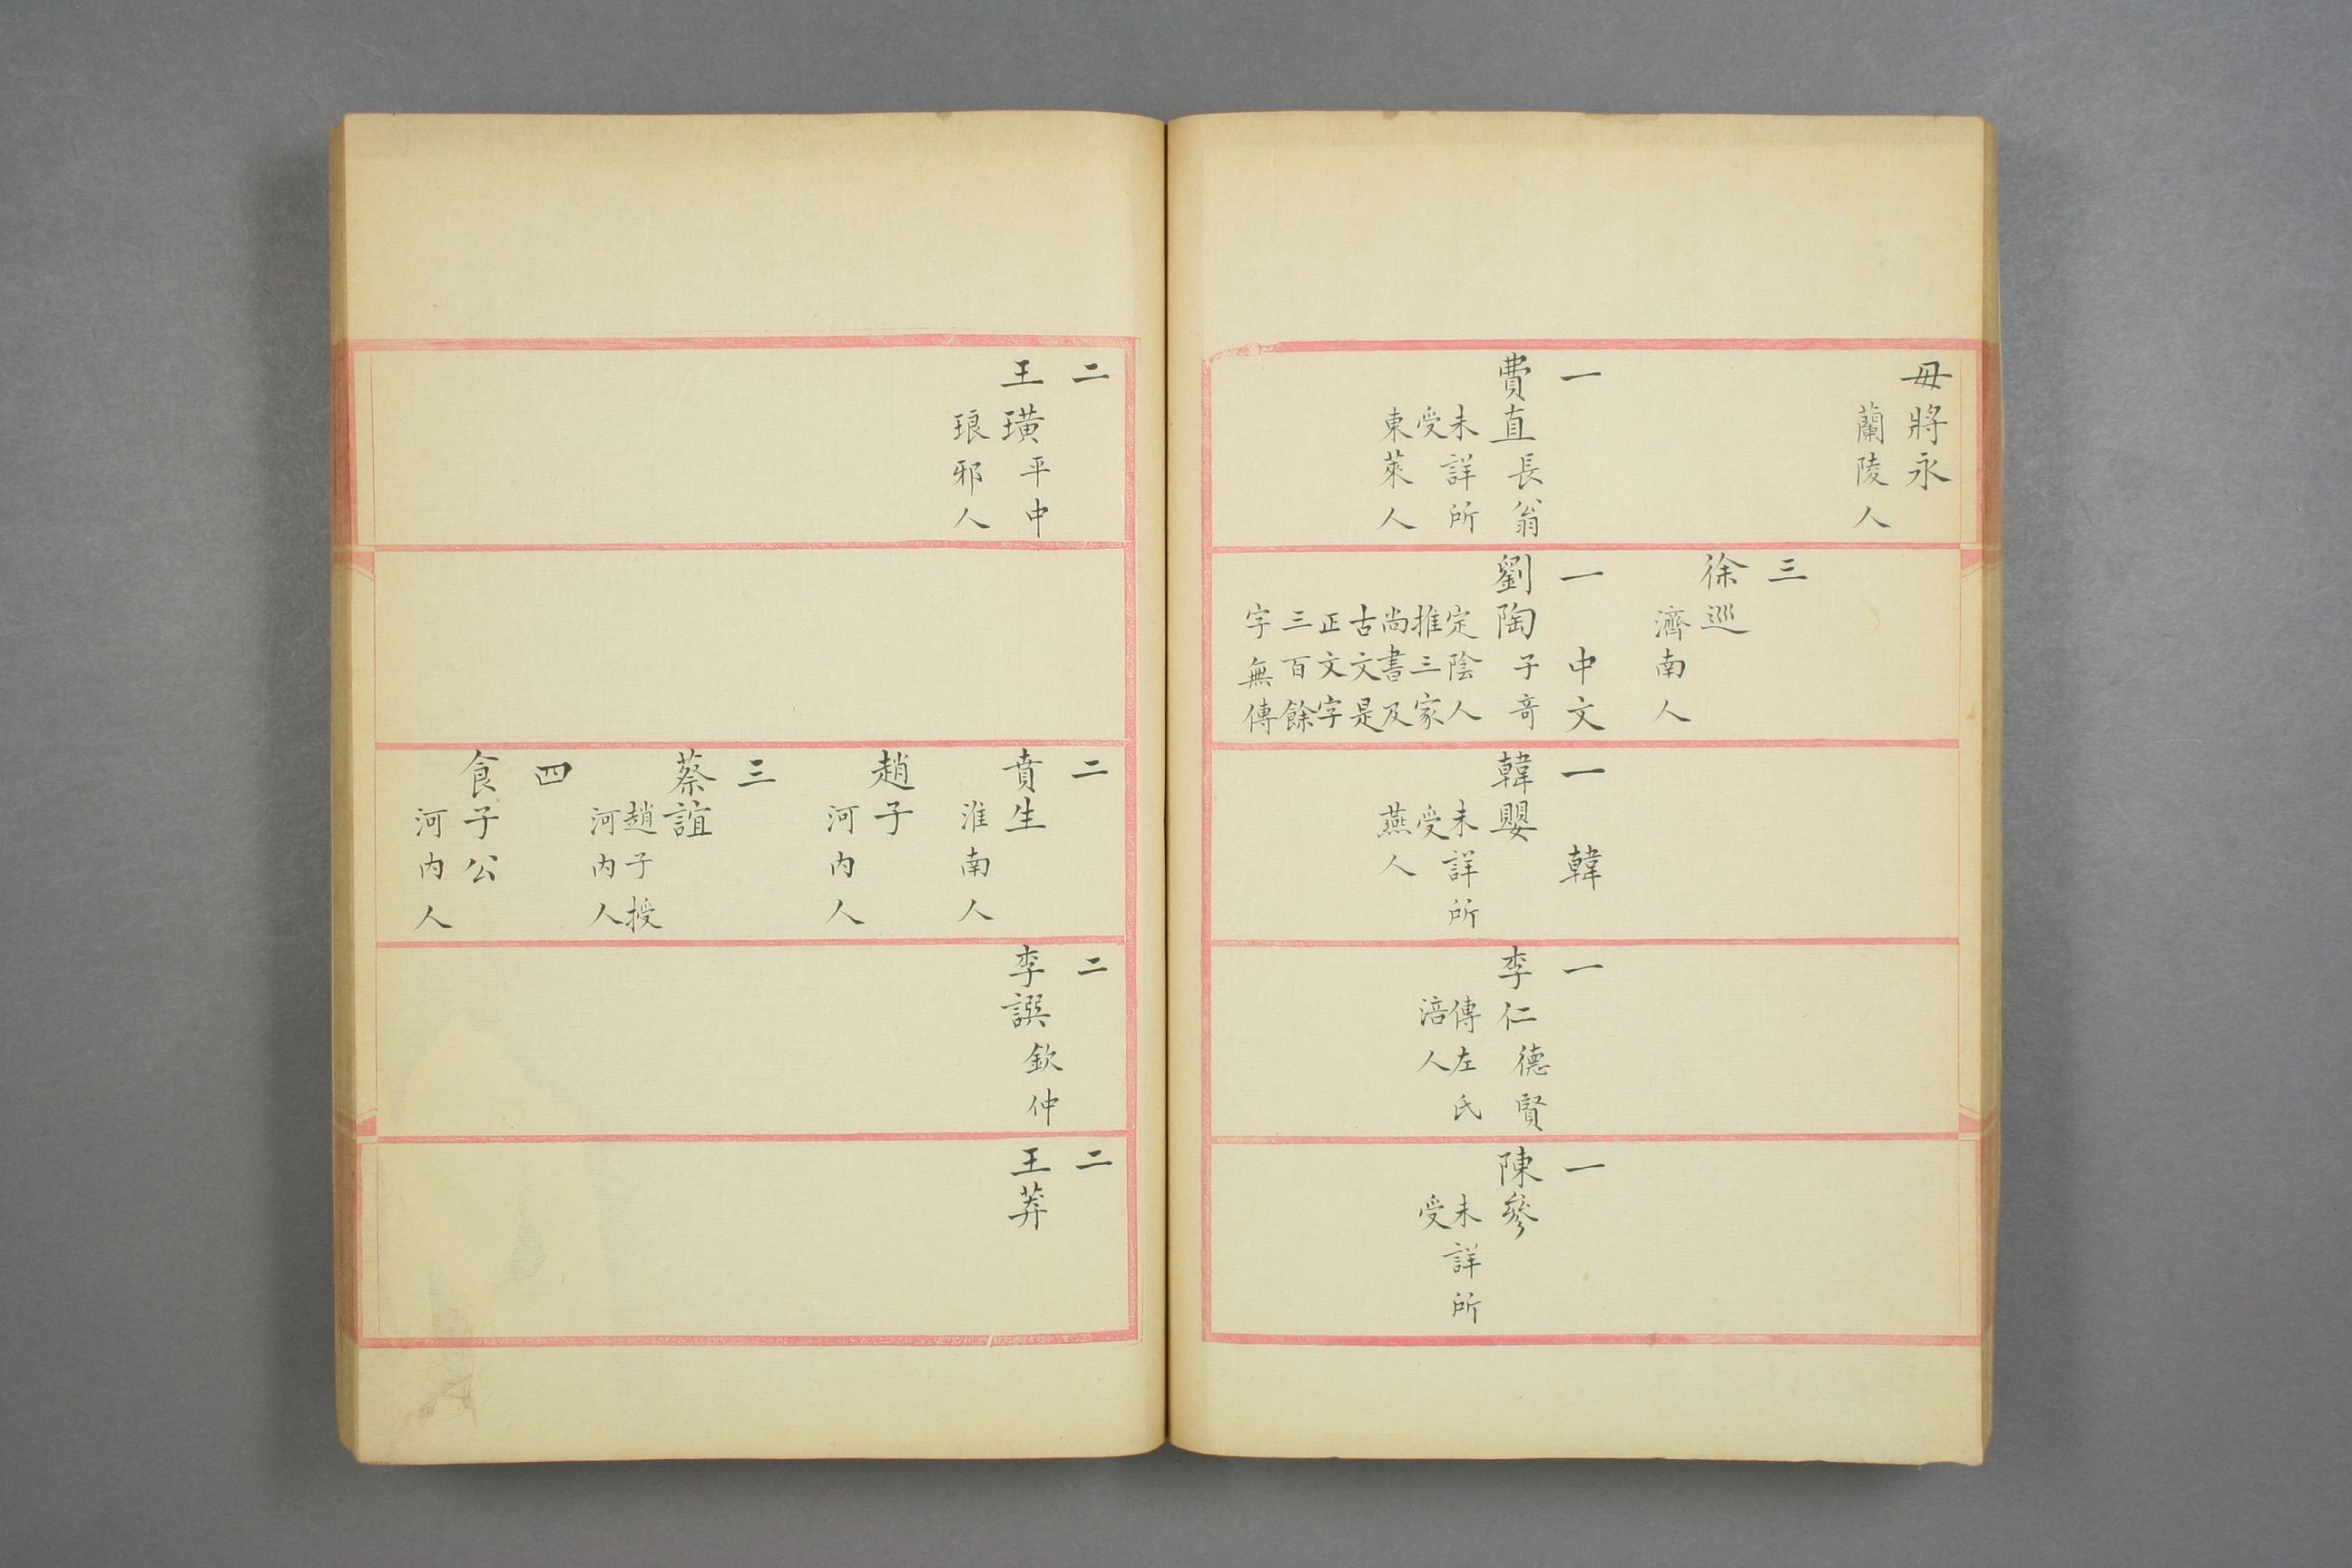 毋將永
蘭陵人
一
費直長翁
未詳所
受
東萊人
三
徐巡
濟南人
一 中文
劉陶子奇
定陰人
推三家
尚書及
古文是
正文字
三百餘
字無傳
一 韓
韓嬰
未詳所
受
燕人
一
李仁德賢
傳左氏
涪人
一
陳參
未詳所
受
二
王璜平中
琅邪人
二
賁生
淮南人
趙子
河內人
三
蔡誼
趙子授
河內人
四
食子公
河內人
二
李譔欽仲
二
王莽